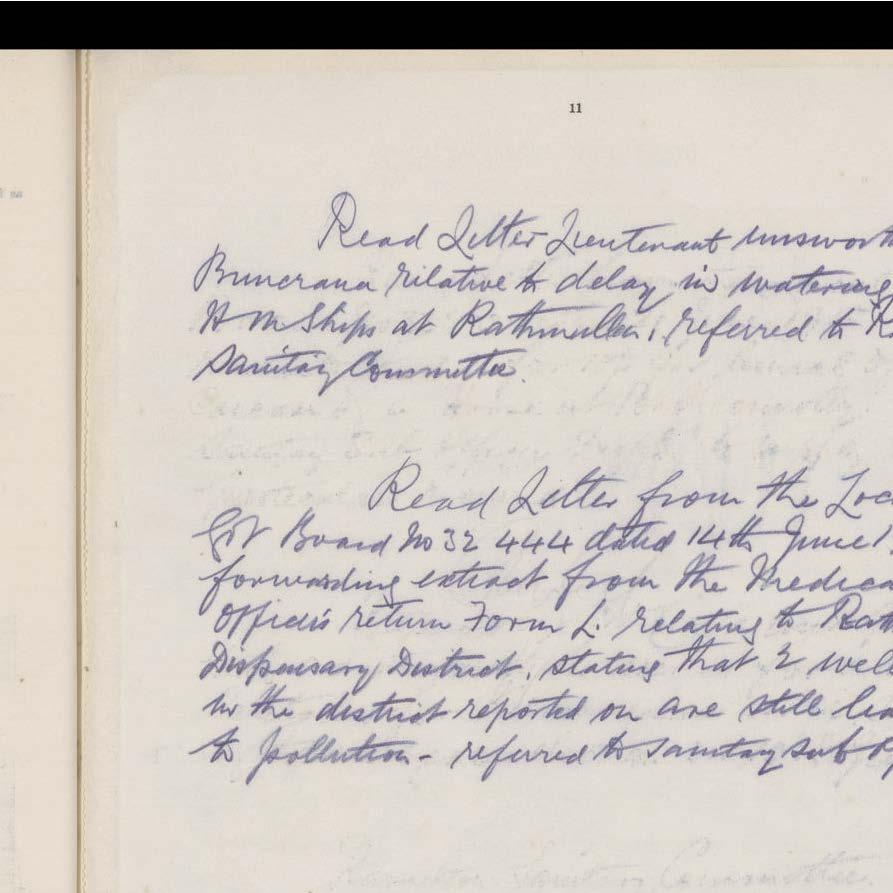 11
Read Letter Lieutenant Unsworth
Buncrana relative to delay in watering
H M Ships at Rathmullen, referred to R
Sanitary Committee.
Read Letter from the Loc
Gov Board No 32 444 dated 14th June 1
forwarding extract from the Medica
Officers return Form L. relating to Rath
Dispensary District, stating that 2 well
in the district reported on are still lia
to pollution - referred to Sanitary Sub